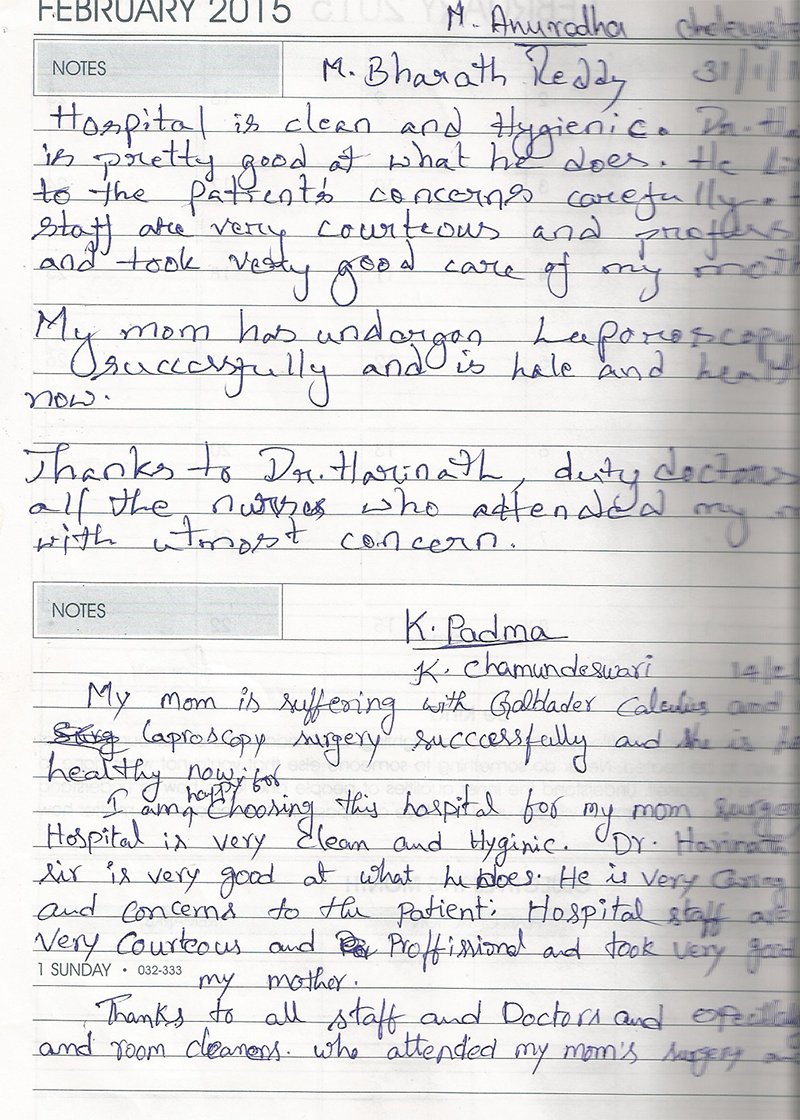 FEBRUARY 2015
M. Anuradha
NOTES
M. Bharath Reddy 31/1/
Hospital is clean and Hygienic. Dr.
is pretty good at what he does. He
to the patient's concerns carefully.
staff are very courteous and
and took very good care of my
My mom has undergon Laporoscopy
successfully and is hale and
now.
Thanks to Dr. Harinath, duty doctors
all the nurses who attended my
with utmost concern.
NOTES
K. Padma
K. Chamundeswari 14/2/
My mom is suffering with Galblader Calculus and
laproscopy surgery succcessfully and she is
healthy now
I am happy for Choosing this hospital for my mom surgery
Hospital is very clean and Hyginic. Dr. Harinath
sir is very good at what he does. He is very Caring
and Concerns to the Patient. Hospital staff are
Very Courteous and Proffissional and took very good
1 SUNDAY • 032-333
my mother.
Thanks to all staff and Doctors and
and room cleaners. who attended my mom's surgery